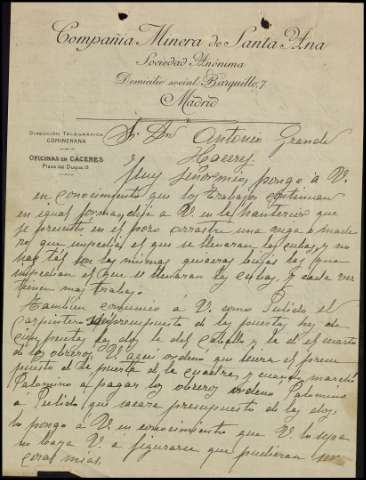 Compañia Minera de Santa Ana
Sociedad Anónima
Domicilio social, Barquillo, 7
Madrid
DIRECCIÓN TELEGRÁFICA
COMINERANA
OFICINAS EN CÁCERES
Sr. Dn Antonio Grande
Muy Señor mio, pongo á V.
en conocimiento que los trabajos continuan
en igual forma, dije á V en la anterior que
se presentó en el pozo arrastre una
que impedia el que se llevaran las cubas, y no
hay tál son las mismas
impedian el que se llevaran las cubas, y cada vez
tienen mas trabajo.
Tambien comunico á V. como Pulido el
carpintero presupuesto de las puertas, hay de
puertas las dos la del Caballo y la de el cuarto
de los obreros, V aqui ordenó que hiciera el presu
puesto de la puerta de la cuadra, y cuando marchó
Palomino á pagar los obreros ordenó Palomino
a Pulido que sacara presupuesto de las dos,
lo pongo á V en conocimiento que V lo sepa
no vaya V a figurarse que pudieran ser
cosas mias.